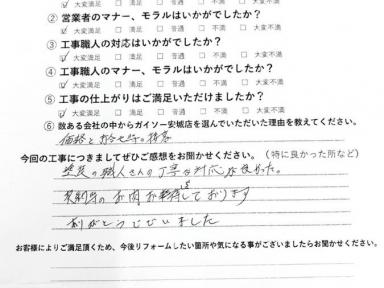 ☑ 大変満足 □ 満足 □ 普通 □ 不満 □ 大変不満
② 営業者のマナー、モラルはいかがでしたか？
☑ 大変満足 □ 満足 □ 普通 □ 不満 □ 大変不満
③ 工事職人の対応はいかがでしたか？
☑ 大変満足 □ 満足 □ 普通 □ 不満 □ 大変不満
④ 工事職人のマナー、モラルはいかがでしたか？
☑ 大変満足 □ 満足 □ 普通 □ 不満 □ 大変不満
⑤ 工事の仕上がりはご満足いただけましたか？
☑ 大変満足 □ 満足 □ 普通 □ 不満 □ 大変不満
⑥ 数ある会社の中からガイソー安城店を選んでいただいた理由を教えてください。
価格と
今回の工事につきましてぜひご感想をお聞かせください。（特に良かった所など）
塗装の職人さんの丁寧な対応が良かった。
契約時のお肉お待ちしております
ありがとうございました
お客様によりご満足頂くため、今後リフォームしたい箇所や気になる事がございましたらお聞かせください。